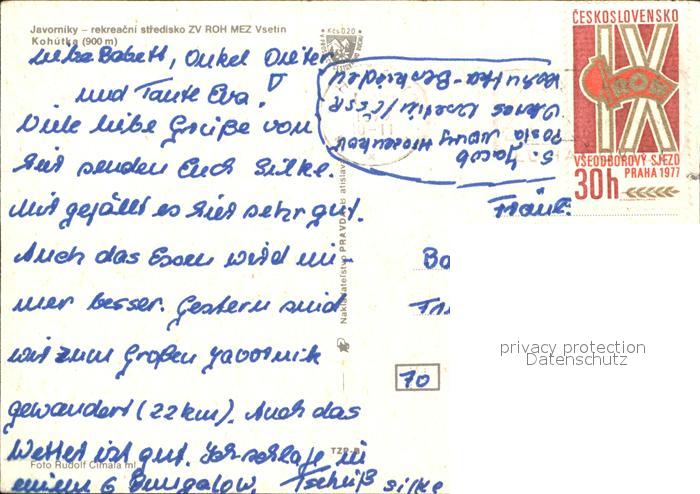 Javorníky – rekreační středisko ZV ROH MEZ Vsetín
Kohútka (900 m)
Liebe Babett, Onkel Dieter
und Tante Eva!
Viele liebe Grüße von
hier senden Euch Silke.
Mir gefällt es hier sehr gut.
Auch das Essen wird im-
mer besser. Gestern sind
wir zum Großen Javornik
gewandert (22 km). Auch das
Wetter ist gut. Ich schlafe in
einem 6 Bungalow. Tschüß Silke
Foto Rudolf Cimala ml.
TZP-B
Nakladateľstvo PRAVDA Bratislava
Kčs 0,20
S. Jacob
Posta Novy Hrozenkov
Okres Vsetin / ČSSR
Kohutka-Beskiden
ČESKOSLOVENSKO
IX
ROH
VŠEODBOROVÝ SJEZD
PRAHA 1977
30h
Ba
70
privacy protection
Datenschutz